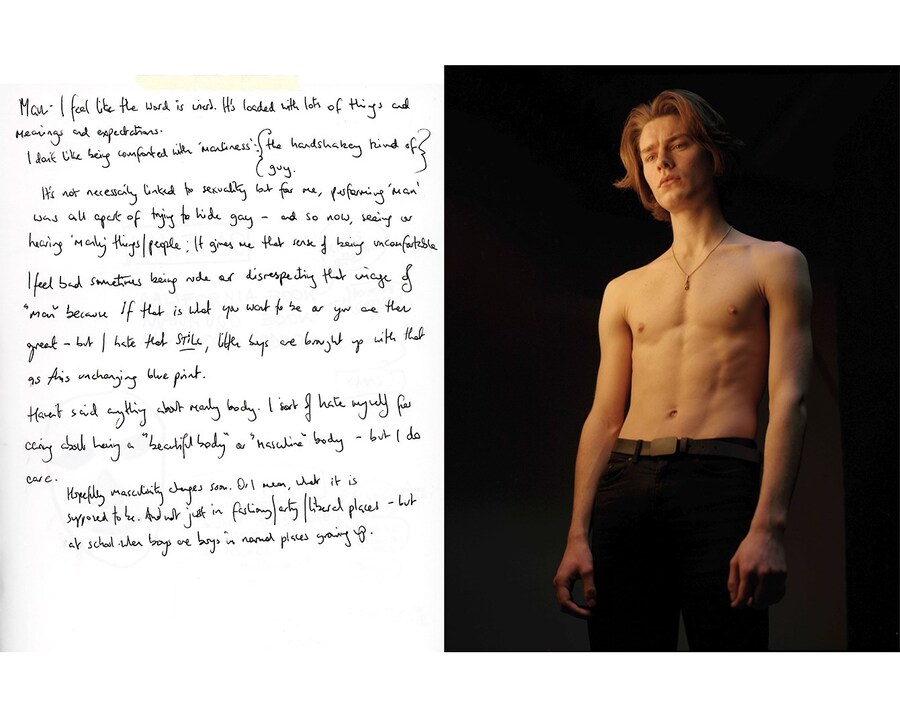 Man - I feel like the word is weird. It's loaded with lots of things and
meanings and expectations.
I don't like being comfronted with 'manliness'. {the handshakey kind of}
guy.
It's not necessarily linked to sexuality but for me, performing 'man'
was all apart of trying to hide gay - and so now, seeing or
hearing 'manly' things/people; It gives me that sense of being uncomfortable
I feel bad sometimes being rude or disrespecting that image of
"man" because If that is what you want to be or you are then
great - but I hate that STILL, little boys are brought up with that
as this unchanging blue print.
Haven't said anything about manly body. I sort of hate myself for
caring about having a "beautiful body" or "masculine" body - but I do
care.
Hopefully masculinity changes soon. Or I mean, what it is
supposed to be. And not just in fashiony/arty/liberal places - but
at school when boys are boys in normal places growing up.